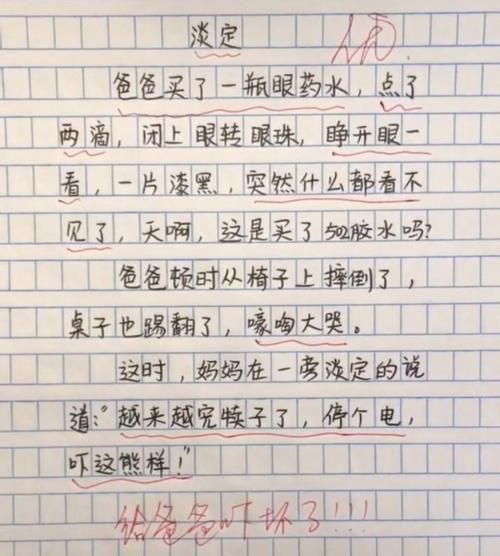 淡定 优
爸爸买了一瓶眼药水，点了
两滴，闭上眼转眼珠，睁开眼一
看，一片漆黑，突然什么都看不
见了，天啊，这是买了502胶水吗？
爸爸顿时从椅子上摔倒了，
桌子也踢翻了，嚎啕大哭。
这时，妈妈在一旁淡定的说
道：“越来越完犊子了，停个电，
吓这熊样！”
给爸爸吓坏了！！！